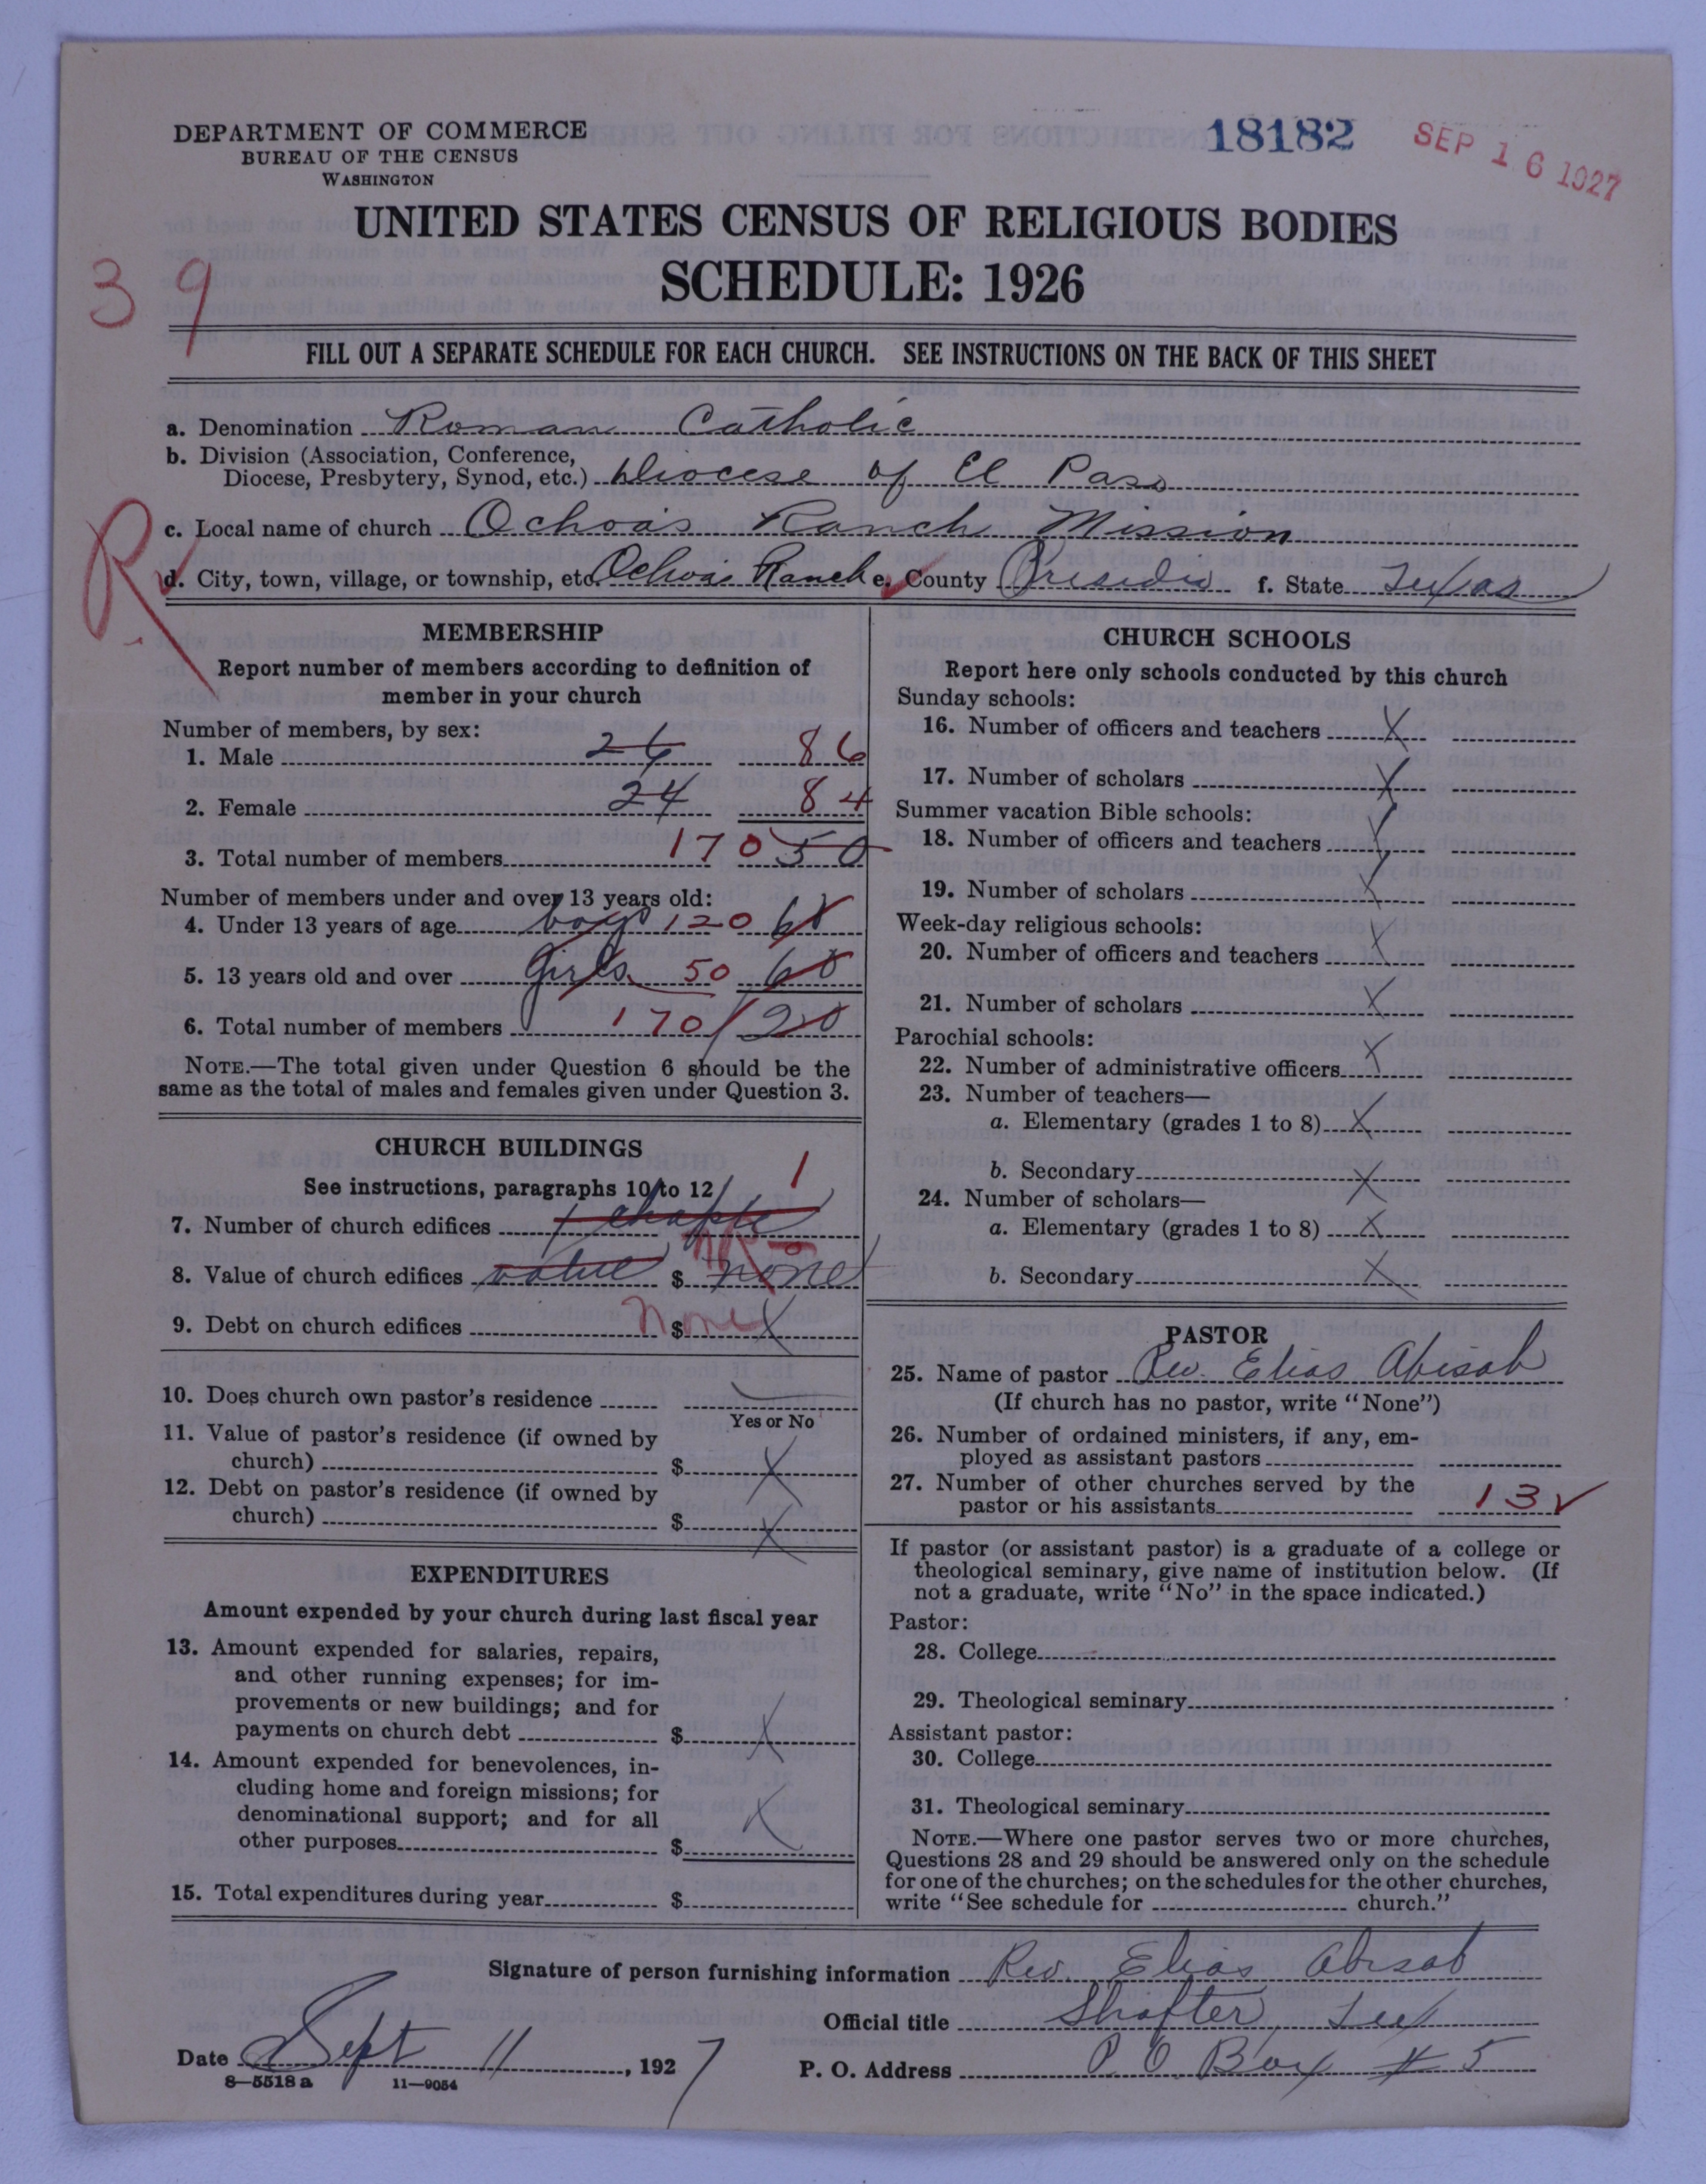 DEPARTMENT OF COMMERCE
BUREAU OF THE CENSUS
WASHINGTON
18182
SEP 16 1927
UNITED STATES CENSUS OF RELIGIOUS BODIES
SCHEDULE: 1926
39
FILL OUT A SEPARATE SCHEDULE FOR EACH CHURCH. SEE INSTRUCTIONS ON THE BACK OF THIS SHEET
a. Denomination Roman Catholic
b. Division (Association, Conference,
Diocese, Presbytery, Synod, etc.) Diocese of El Paso
c. Local name of church Ochoa's Ranch Mission
R
d. City, town, village, or township, etc. Ochoa's Ranch e. County Presidio f. State Texas
MEMBERSHIP
Report number of members according to definition of
member in your church
Number of members, by sex:
1. Male 26 86
2. Female 24 84
3. Total number of members 170 50
Number of members under and over 13 years old:
4. Under 13 years of age boys 120 60
5. 13 years old and over girls 50 60
6. Total number of members 170 120
NOTE.—The total given under Question 6 should be the
same as the total of males and females given under Question 3.
CHURCH BUILDINGS
See instructions, paragraphs 10 to 12
1
7. Number of church edifices 1 chaple
8. Value of church edifices value $ none
9. Debt on church edifices None $ X
10. Does church own pastor's residence
Yes or No
11. Value of pastor's residence (if owned by
church) $ X
12. Debt on pastor's residence (if owned by
church) $ X
EXPENDITURES
Amount expended by your church during last fiscal year
13. Amount expended for salaries, repairs,
and other running expenses; for im-
provements or new buildings; and for
payments on church debt $ X
14. Amount expended for benevolences, in-
cluding home and foreign missions; for
denominational support; and for all
other purposes $ X
15. Total expenditures during year $
CHURCH SCHOOLS
Report here only schools conducted by this church
Sunday schools:
16. Number of officers and teachers X
17. Number of scholars X
Summer vacation Bible schools:
18. Number of officers and teachers X
19. Number of scholars X
Week-day religious schools:
20. Number of officers and teachers X
21. Number of scholars X
Parochial schools:
22. Number of administrative officers X
23. Number of teachers—
a. Elementary (grades 1 to 8) X
b. Secondary X
24. Number of scholars—
a. Elementary (grades 1 to 8) X
b. Secondary X
PASTOR
25. Name of pastor Rev. Elias Abisab
(If church has no pastor, write "None")
26. Number of ordained ministers, if any, em-
ployed as assistant pastors
27. Number of other churches served by the
pastor or his assistants 13 ✓
If pastor (or assistant pastor) is a graduate of a college or
theological seminary, give name of institution below. (If
not a graduate, write "No" in the space indicated.)
Pastor:
28. College
29. Theological seminary
Assistant pastor:
30. College
31. Theological seminary
NOTE.—Where one pastor serves two or more churches,
Questions 28 and 29 should be answered only on the schedule
for one of the churches; on the schedules for the other churches,
write "See schedule for church."
Signature of person furnishing information Rev. Elias Abisab
Official title Shafter, Tex
Date Sept 11, 1927 P. O. Address P. O. Box # 5
8—5518 a 11—9054